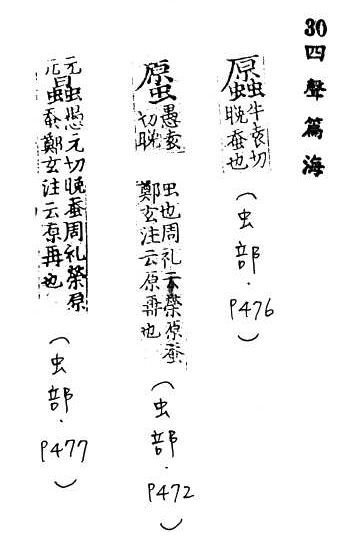 30 四聲篇海
牛袁切
晚蚕也
(虫部.P476)
愚袁
切晚
虫也周礼云禁原蚕
鄭玄注云原再也
(虫部.P472)
元切晚蚕周礼禁原
蚕鄭玄注云原再也
(虫部.P477)